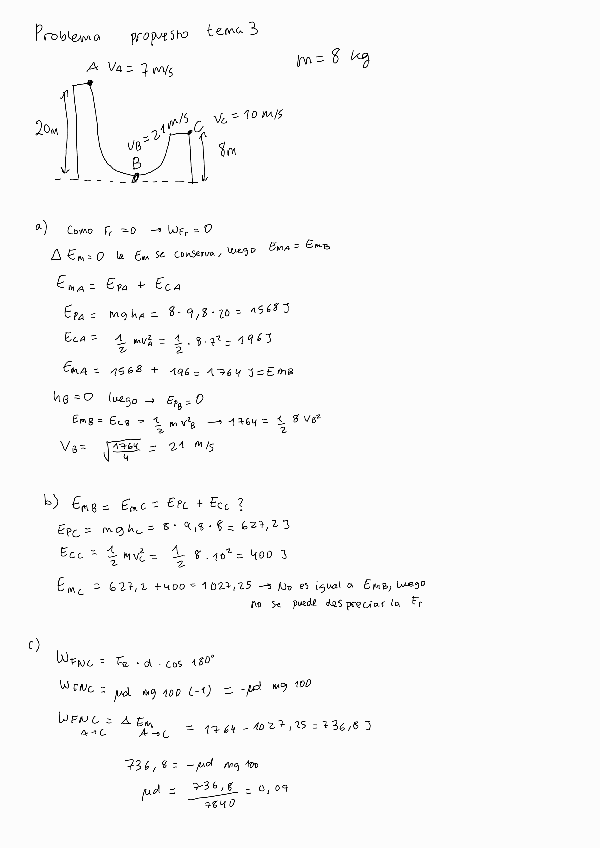 Problema propuesto tema 3
m = 8 kg
A VA = 7 m/s
20m
VB = 21 m/s
C VC = 10 m/s
B
8m
a) Como Fr = 0 → WFr = 0
Δ Em = 0 la Em se conserva, luego EmA = EmB
EmA = EPA + ECA
EPA = mghA = 8 · 9,8 · 20 = 1568 J
ECA = 1/2 mvA² = 1/2 · 8 · 7² = 196 J
EmA = 1568 + 196 = 1764 J = EmB
hB = 0 luego → EPB = 0
EmB = ECB = 1/2 mv²B → 1764 = 1/2 8 VB²
VB = √1764/4 = 21 m/s
b) EmB = EmC = EPC + ECC ?
EPC = mghC = 8 · 9,8 · 8 = 627,2 J
ECC = 1/2 mvC² = 1/2 8 · 10² = 400 J
EmC = 627,2 + 400 = 1027,25 → No es igual a EmB, luego
no se puede despreciar la Fr
c) WFNC = FR · d · cos 180°
WFNC = μd mg 100 (-1) = -μd mg 100
WFNC A→C = Δ Em A→C = 1764 - 1027,25 = 736,8 J
736,8 = -μd mg 100
μd = 736,8/7840 = 0,09